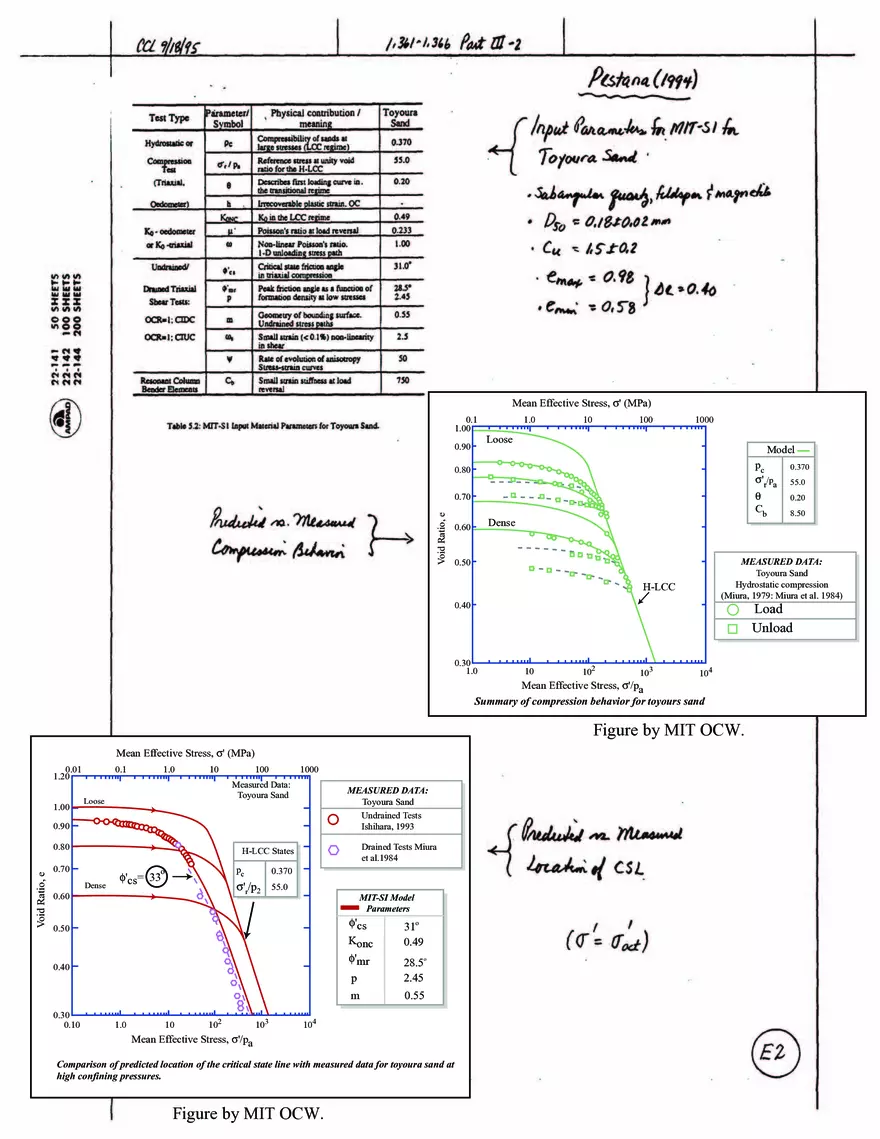 CCL 9/18/95
1.361-1.366 Part III-2
Pestana (1994)
Test Type
Parameter/
Symbol
Physical contribution /
meaning
Toyoura
Sand
Hydrostatic or
Compression
Test
(Triaxial,
Oedometer)
ρc
Compressibility of sands at
large stresses (LCC regime)
0.370
σ'r / pa
Reference stress at unity void
ratio for the H-LCC
55.0
θ
Describes first loading curve in.
the transitional regime
0.20
h
Irrecoverable plastic strain. OC
-
K0 - oedometer
or K0 -triaxial
KONC
K0 in the LCC regime
0.49
μ'
Poisson's ratio at load reversal
0.233
ω
Non-linear Poisson's ratio.
1-D unloading stress path
1.00
Undrained/
Drained Triaxial
Shear Tests:
OCR=1; CIDC
OCR=1; CIUC
φ'cs
Critical state friction angle
in triaxial compression
31.0°
φ'mr
p
Peak friction angle as a function of
formation density at low stresses
28.5°
2.45
m
Geometry of bounding surface.
Undrained stress paths
0.55
ωs
Small strain (<0.1%) non-linearity
in shear
2.5
ψ
Rate of evolution of anisotropy
Stress-strain curves
50
Resonant Column
Bender Elements
Cb
Small strain stiffness at load
reversal
750
Table 5.2: MIT-S1 Input Material Parameters for Toyoura Sand.
Input Parameters for MIT-S1 for
Toyoura Sand
• Subangular quartz, feldspar & magnetite
• D50 = 0.18±0.02 mm
• Cu = 1.5±0.2
• emax = 0.98
• emin = 0.58
Δe = 0.40
22-141 50 SHEETS
22-142 100 SHEETS
22-144 200 SHEETS
AMPAD
Predicted vs. Measured
Compression Behavior
Mean Effective Stress, σ' (MPa)
0.1 1.0 10 100 1000
1.00
0.90
0.80
0.70
0.60
0.50
0.40
0.30
Void Ratio, e
Loose
Dense
H-LCC
1.0 10 10² 10³ 10⁴
Mean Effective Stress, σ'/pa
Summary of compression behavior for toyours sand
Model
pc 0.370
σ'r/pa 55.0
θ 0.20
Cb 8.50
MEASURED DATA:
Toyoura Sand
Hydrostatic compression
(Miura, 1979: Miura et al. 1984)
Load
Unload
Figure by MIT OCW.
Mean Effective Stress, σ' (MPa)
0.01 0.1 1.0 10 100 1000
1.20
1.00
0.90
0.80
0.70
0.60
0.50
0.40
0.30
Void Ratio, e
Measured Data:
Toyoura Sand
Loose
Dense
φ'cs= 33°
H-LCC States
pc 0.370
σ'r/p2 55.0
0.10 1.0 10 10² 10³ 10⁴
Mean Effective Stress, σ'/pa
Comparison of predicted location of the critical state line with measured data for toyoura sand at
high confining pressures.
MEASURED DATA:
Toyoura Sand
Undrained Tests
Ishihara, 1993
Drained Tests Miura
et al.1984
MIT-SI Model
Parameters
φ'cs 31°
Konc 0.49
φ'mr 28.5°
p 2.45
m 0.55
Figure by MIT OCW.
Predicted vs. Measured
Location of CSL
(σ' = σ'oct)
E2